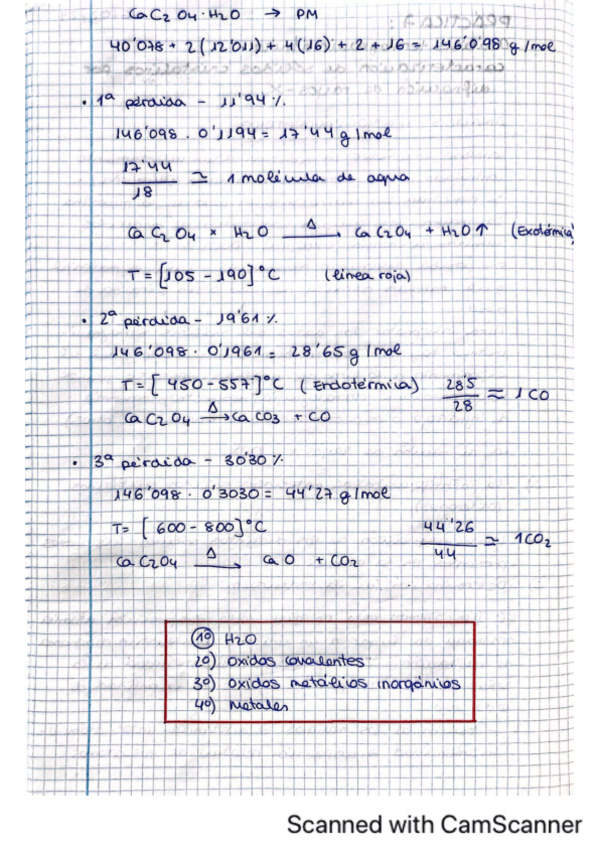 CaC2O4·H2O → PM
40'078 + 2(12'011) + 4(16) + 2 + 16 = 146'098 g/mol
· 1ª pérdida - 11'94 %.
146'098 . 0'1194 = 17'44 g/mol
17'44
18
≃ 1 molécula de agua
CaC2O4 × H2O Δ→ CaC2O4 + H2O↑ (Exotérmica)
T = [105 - 190]°C (línea roja)
· 2ª pérdida - 19'61 %.
146'098 . 0'1961 = 28'65 g/mol
T = [450-557]°C (Endotérmica) 28'5
28
≈ 1CO
CaC2O4 Δ→ CaCO3 + CO
· 3ª pérdida - 30'30 %.
146'098 . 0'3030 = 44'27 g/mol
T= [600-800]°C
44'26
44
≃ 1CO2
CaC2O4 Δ→ CaO + CO2
1º) H2O
2º) Oxidos covalentes
3º) Oxidos metálicos inorgánicos
4º) Metales
Scanned with CamScanner